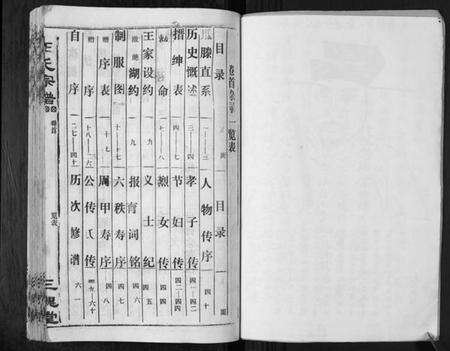 卷首 一览表
目录 目录
直系 一 人物传序 四十
历史概述 三—四 孝子传 四一—四二
搢绅表 四—七 节妇传 四二—四四
命 七—八 烈女传 四四
王家设约 九 义士纪 四五
湖约 九 报育词铭 四六
制服图 十—十七 六秩寿序 四七
序表 十七 周甲寿序 四八
序 十八—六 公传氏传 六十
自序 二七—四十 历次修谱 六一
氏宗谱
卷首
览表
三槐堂